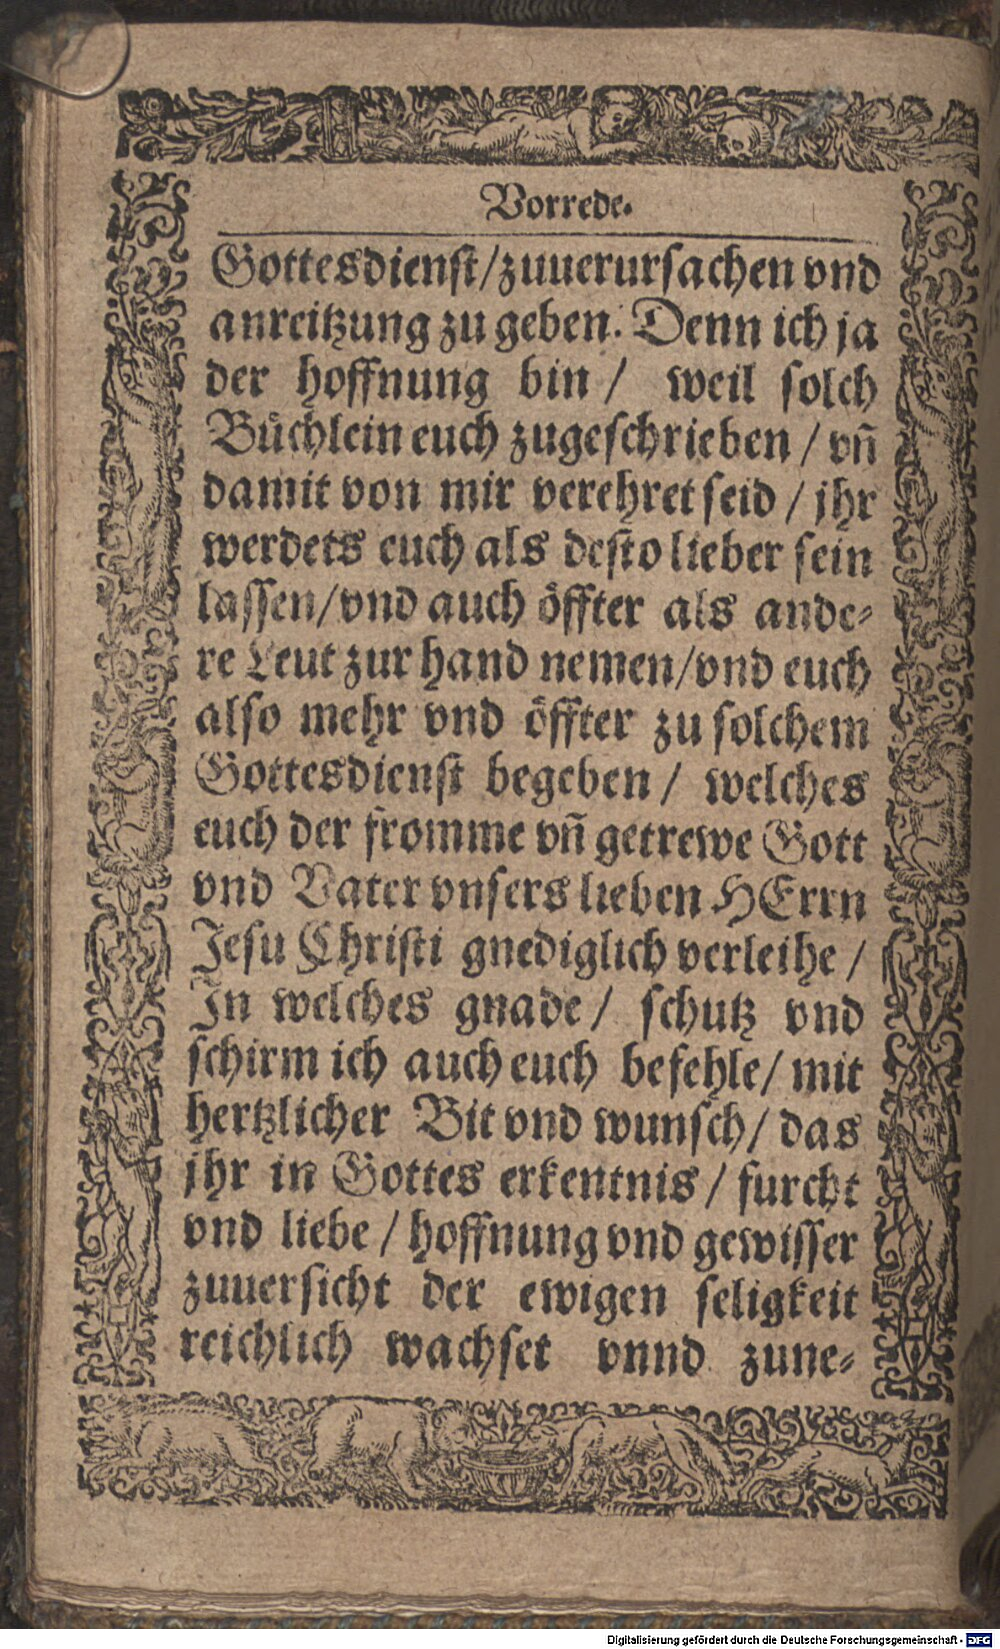 Vorrede.
Gottesdienst/zuuerursachen vnd
anreitzung zu geben. Denn ich ja
der hoffnung bin / weil solch
Bůchlein euch zugeschrieben / vn̄
damit von mir verehret seid / jhr
werdets euch als desto lieber sein
lassen/vnd auch öffter als ande-
re Leut zur hand nemen/vnd euch
also mehr vnd öffter zu solchem
Gottesdienst begeben / welches
euch der fromme vn̄ getrewe Gott
vnd Vater vnsers lieben HErrn
Jesu Christi gnediglich verleihe /
In welches gnade / schutz vnd
schirm ich auch euch befehle/ mit
hertzlicher Bit vnd wunsch/ das
jhr in Gottes erkentnis / furcht
vnd liebe / hoffnung vnd gewisser
zuuersicht der ewigen seligkeit
reichlich wachset vnnd zune-
Digitalisierung gefördert durch die Deutsche Forschungsgemeinschaft - DFG